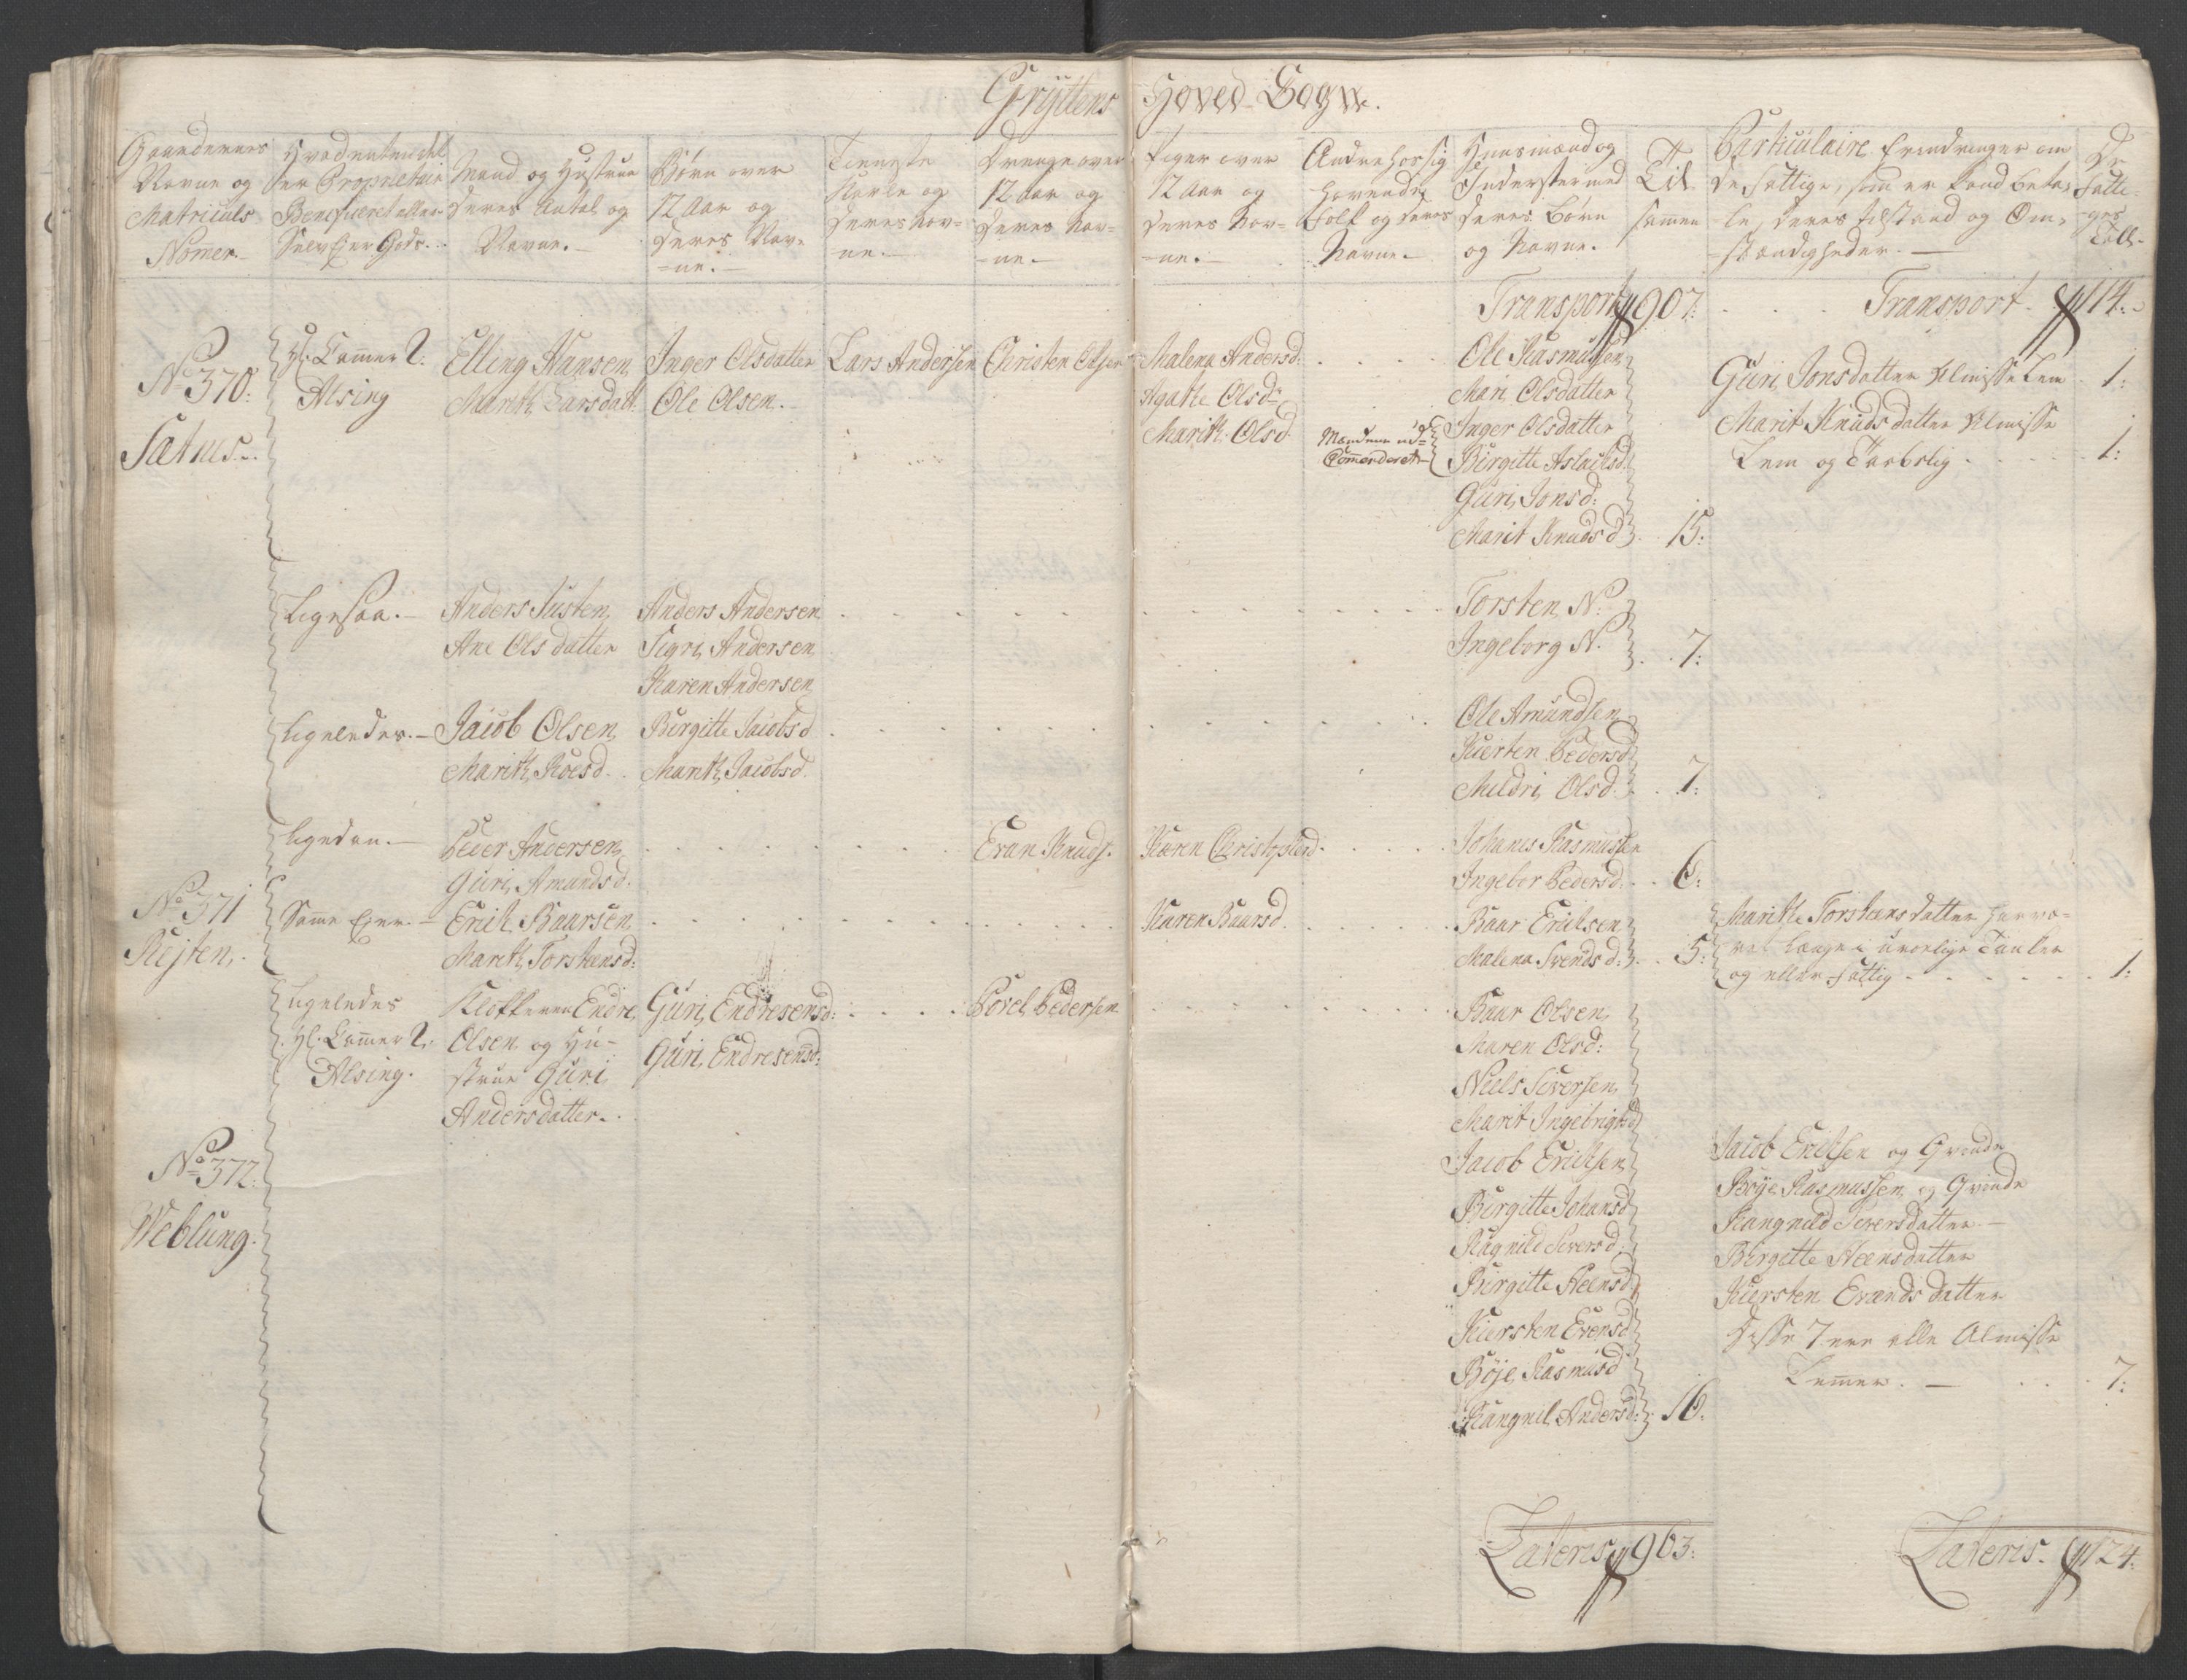 Gryttens Hoved-Sogn.
Gaardernes
Navne og
Matriculs
Nomer.
Hvad enten det
er Proprietair
Beneficeret eller
Selv Eier Gods.
Mand og Hustrue
Deres Antal og
Navne.
Børn over
12 Aar og
Deres Nav-
=ne.
Tieneste
Karle og
Deres Nav=
ne.
Drenge over
12 Aar og
Deres Nav=
=ne.
Piger over
12 Aar og
Deres Nav=
=ne.
Andre hos sig
havende
Folk og Deres
Navne.
Huusmænd og
Inderster med
Deres Børn
og Navne.
Til
samen
Particulaire Erindringer om
De Fattige, som ei kand beta-
le, Deres tilstand og Om-
=stændigheder.
De
Fatti-
=ges
Tall.
Transport 907:
Transport 114.
No 370:
Sætnes.
Hl. Cammer R:
Alsing
Elling Hansen
Marith Larsdatt:
Inger Olsdatter
Ole Olsen.
Lars Andersen
Christen Olsen
Malena Andersd:
Agathe Olsd:
Marith Olsd.
Manden ud-
Commanderet
Ole Rasmussen
Mari Olsdatter
Inger Olsdatter
Birgitte Aslachsd.
Guri Jonsd:
Marit Knudsd. 15:
Guri Jonsdatter Almisse Lem 1:
Marit Knudsdatter Almisse
Lem og Taabelig 1:
Ligesaa.
Anders Justen
Ane Olsdatter
Anders Andersen
Sigri Andersen
Karen Andersen
Torsten N:
Ingeborg N. 7:
Ligeledes.
Jacob Olsen
Marith Roesd.
Birgitte Jacobsd
Marith Jacobsd.
Ole Amundsen
Kiersten Pedersd
Mildri Olsd. 7:
Ligedan.
Peder Andersen
Guri Amundsd.
Evan Knuds.
Karen Christophersd.
Johanes Rasmussen
Ingebor Pedersd. 6:
No 371
Rejten.
Samme Eier.
Erich Baarsen
Marith Torstensd:
Karen Baarsd.
Baar Erichsen
Malena Svendsd: 5:
Marithe Torstensdatter har væ-
ret længe i urolige Tanker
og ellers fattig 1:
Ligeledes
Hl. Cammer R:
Alsing.
Klokkeren Endre
Olsen og Hu-
strue Guri
Andersdatter.
Guri Endresensd:
Guri Endresensd:
Povel Pedersen
No 372:
Weblung.
Baar Olsen
Maren Olsd:
Niels Siversen
Marit Ingebrigtsd
Jacob Erichsen
Birgitte Johansd
Ragnild Siversd.
Birgitte Steensd
Kiersten Evensd
Böje Rasmusd
Rangnil Andersd: 16.
Jacob Erichsen og Qvinde
Böye Rasmussen og Qvinde
Rangnild Siversdatter
Birgitte Steensdatter
Kiersten Evendsdatter
Disse 7 ere alle Almisse
Lemmer. 7:
Lateris 963:
Lateris. 124: